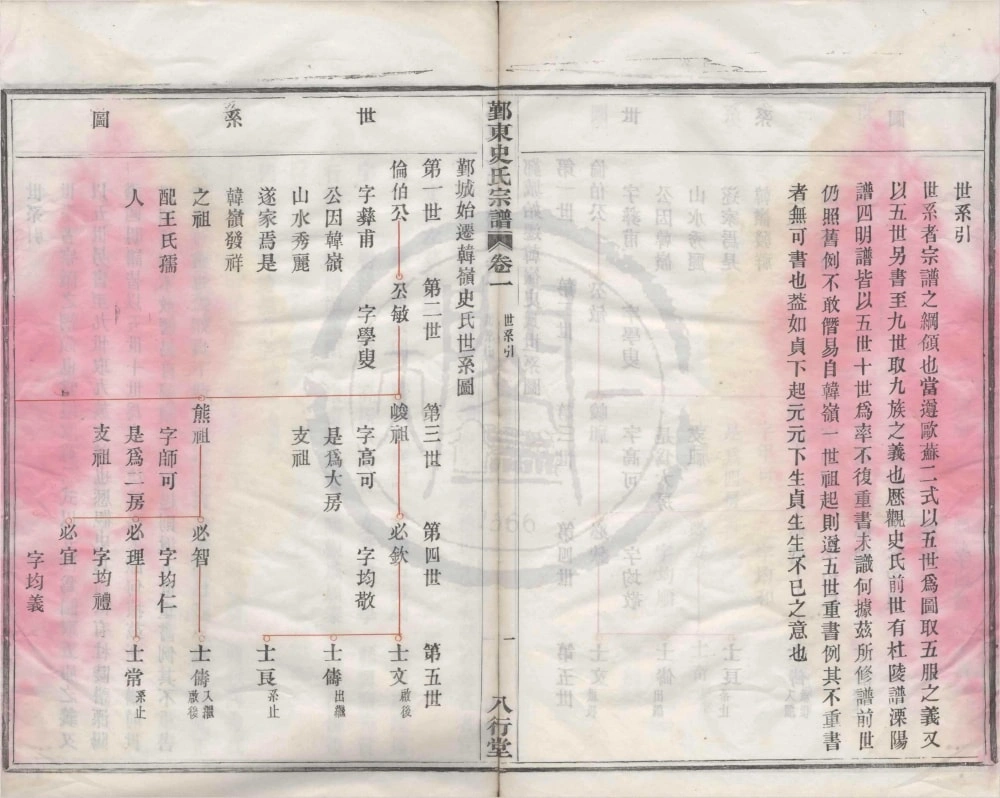 世系引
世系者宗譜之綱領也當遵歐蘇二式以五世爲圖取五服之義又
以五世另書至九世取九族之義也歷觀史氏前世有杜陵譜溧陽
譜四明譜皆以五世十世爲率不復重書未識何據茲所修譜前世
仍照舊例不敢僭易自韓嶺一世祖起則遵五世重書例其不重書
者無可書也葢如貞下起元元下生貞生生不已之意也
鄞東史氏宗譜 卷一 世系引 一 八行堂
世系圖
鄞城始遷韓嶺史氏世系圖
第一世 第二世 第三世 第四世 第五世
倫伯公 公敏 峻祖 必欽 士文 啟後
字彝甫 字學叟 字高可 字均敬
公因韓嶺 是爲大房 士儔 出繼
山水秀麗 支祖
遂家焉是 士良 系止
韓嶺發祥
之祖 熊祖 必智 士儔 入繼啟後
配王氏孺 字師可 字均仁
人 是爲二房 必理 士常 系止
支祖 字均禮
必宜
字均義